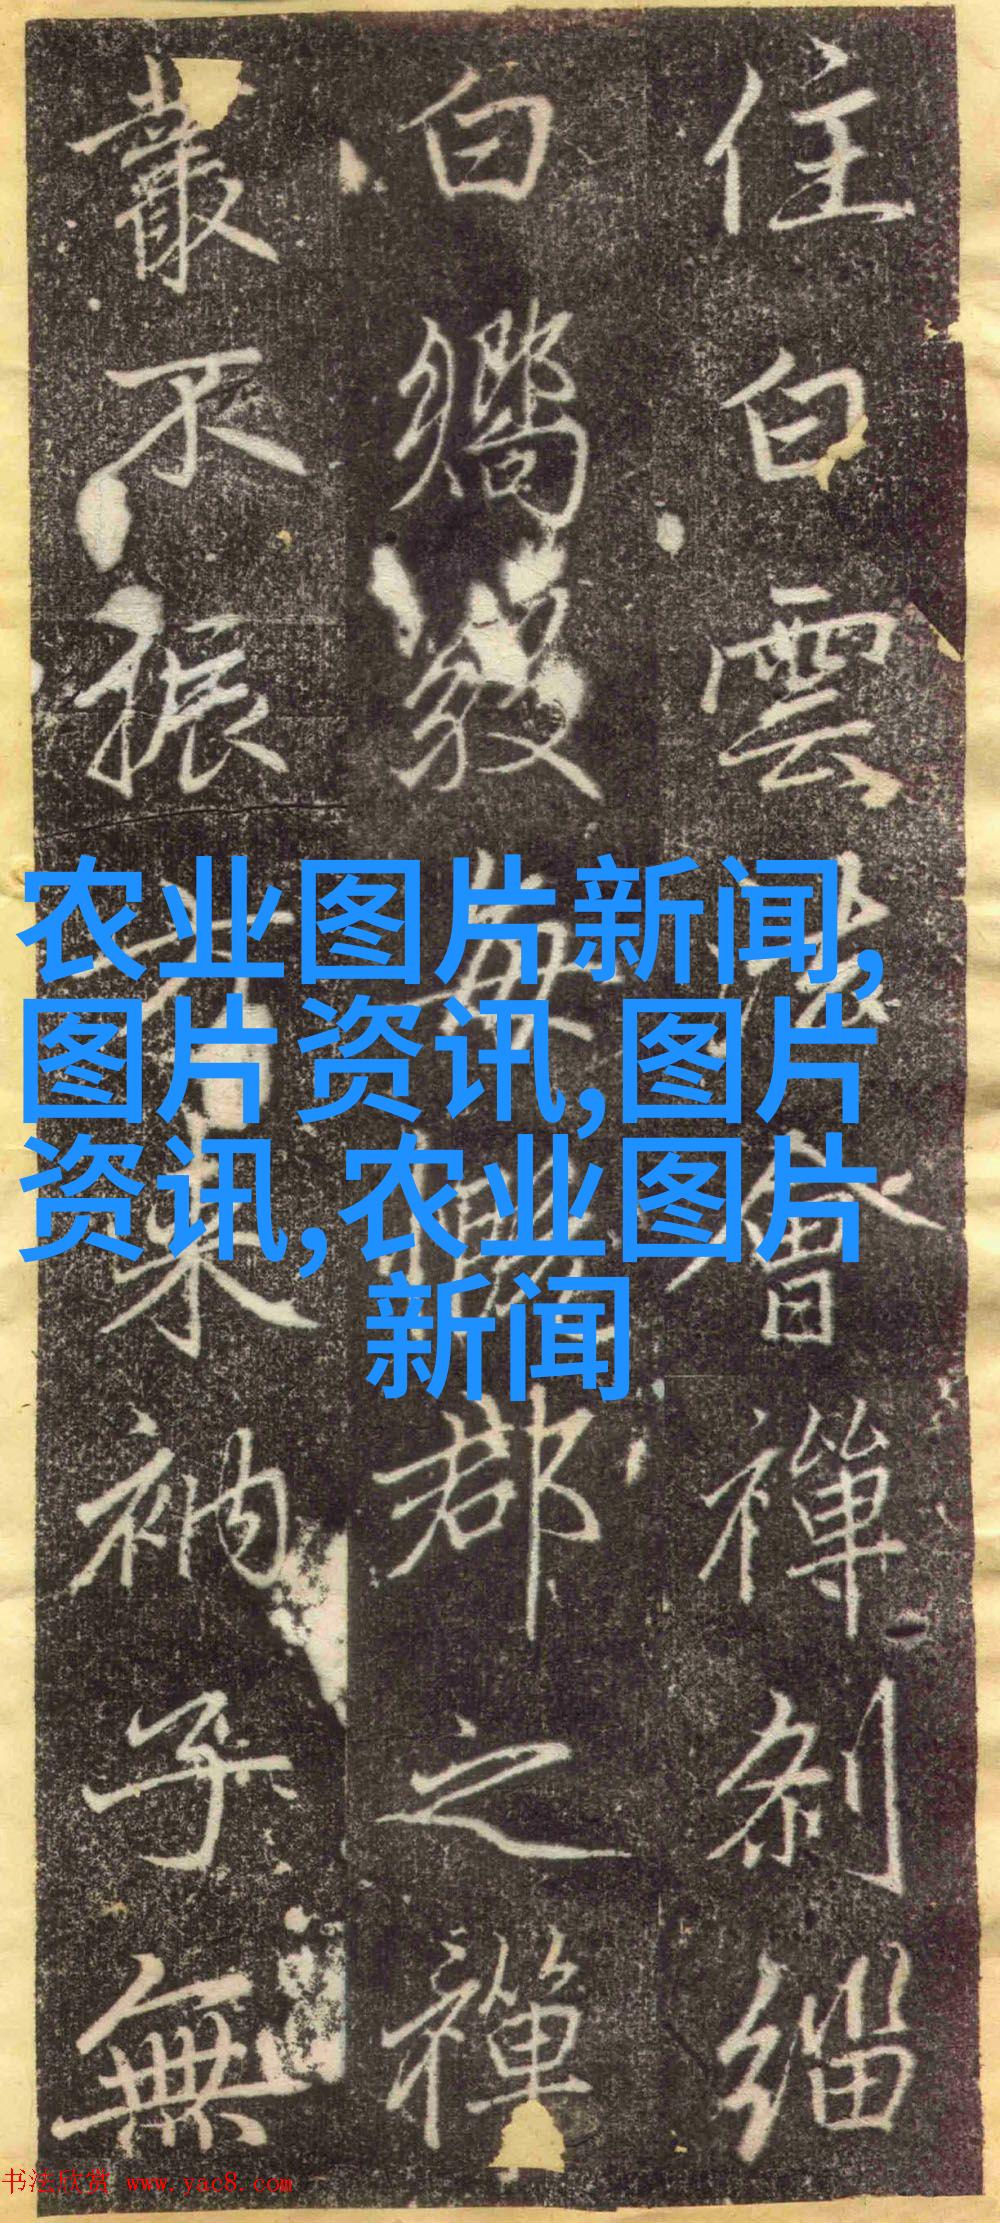 住白雲
會禪剎緇
白鄉
郡之禪
叢不振
來衲子無
农业图片新闻,
图片资讯,图片
资讯,农业图片
新闻
书法欣赏 www.yac8.com